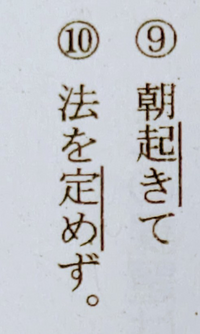 ⑨ 朝起きて
⑩ 法を定めず。